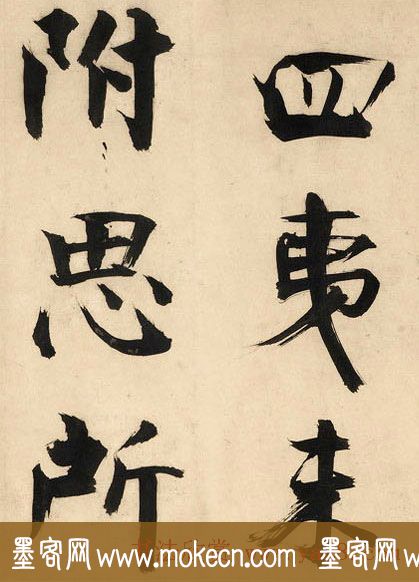 四夷未
附思所
墨客网 www.mokecn.com 墨客网 ww